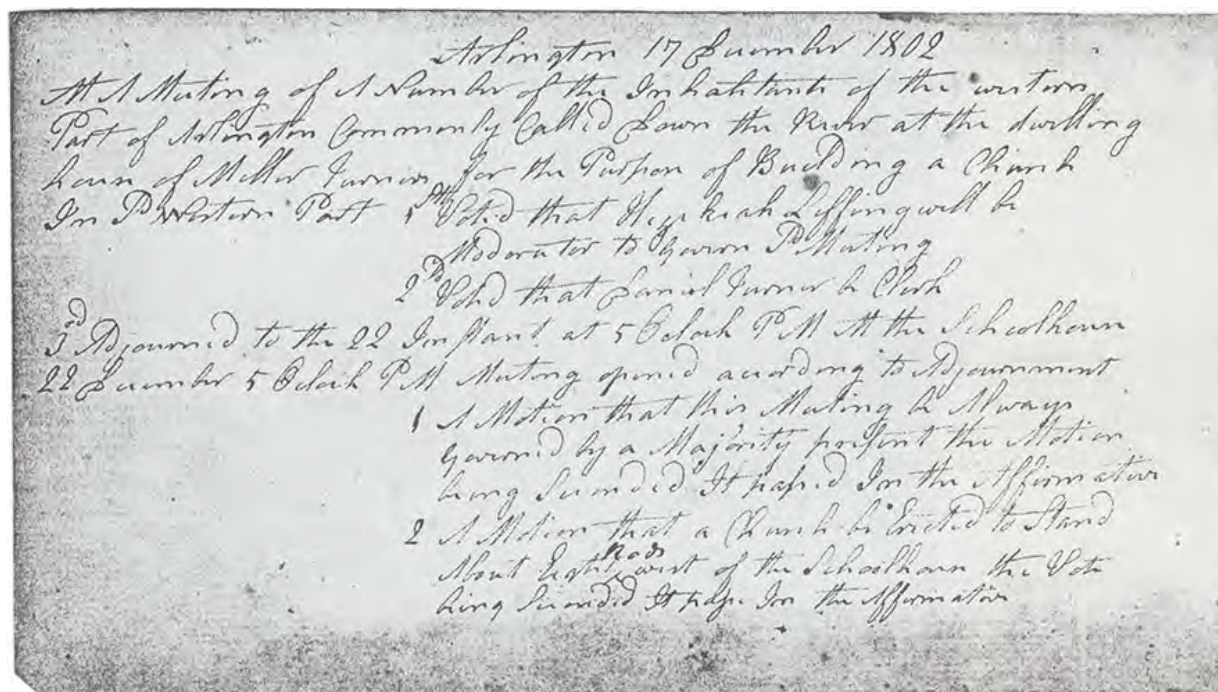 Arlington 17 December 1802
At A Meeting of A Number of the Inhabitants of the western
Part of Arlington Commonly Called Down the River at the dwelling
house of Miller Turners for the Purpose of Building a Church
In Sd Western Part 1st Voted that Hezekiah Leffingwell be
Moderator to Govern Sd Meeting
2d Voted that Daniel Turner be Clerk
3rd Adjourned to the 22 Instant at 5 Oclock PM At the Schoolhouse
22 December 5 Oclock PM Meeting opened according to Adjournment
1 A Motion that this Meeting be Always
Governed by a Majority present the Motion
being Seconded It passed In the Affirmative
2 A Motion that a Church be Erected to Stand
About Eight Rods west of the Schoolhouse the Vote
being Seconded It pass In the Affirmative